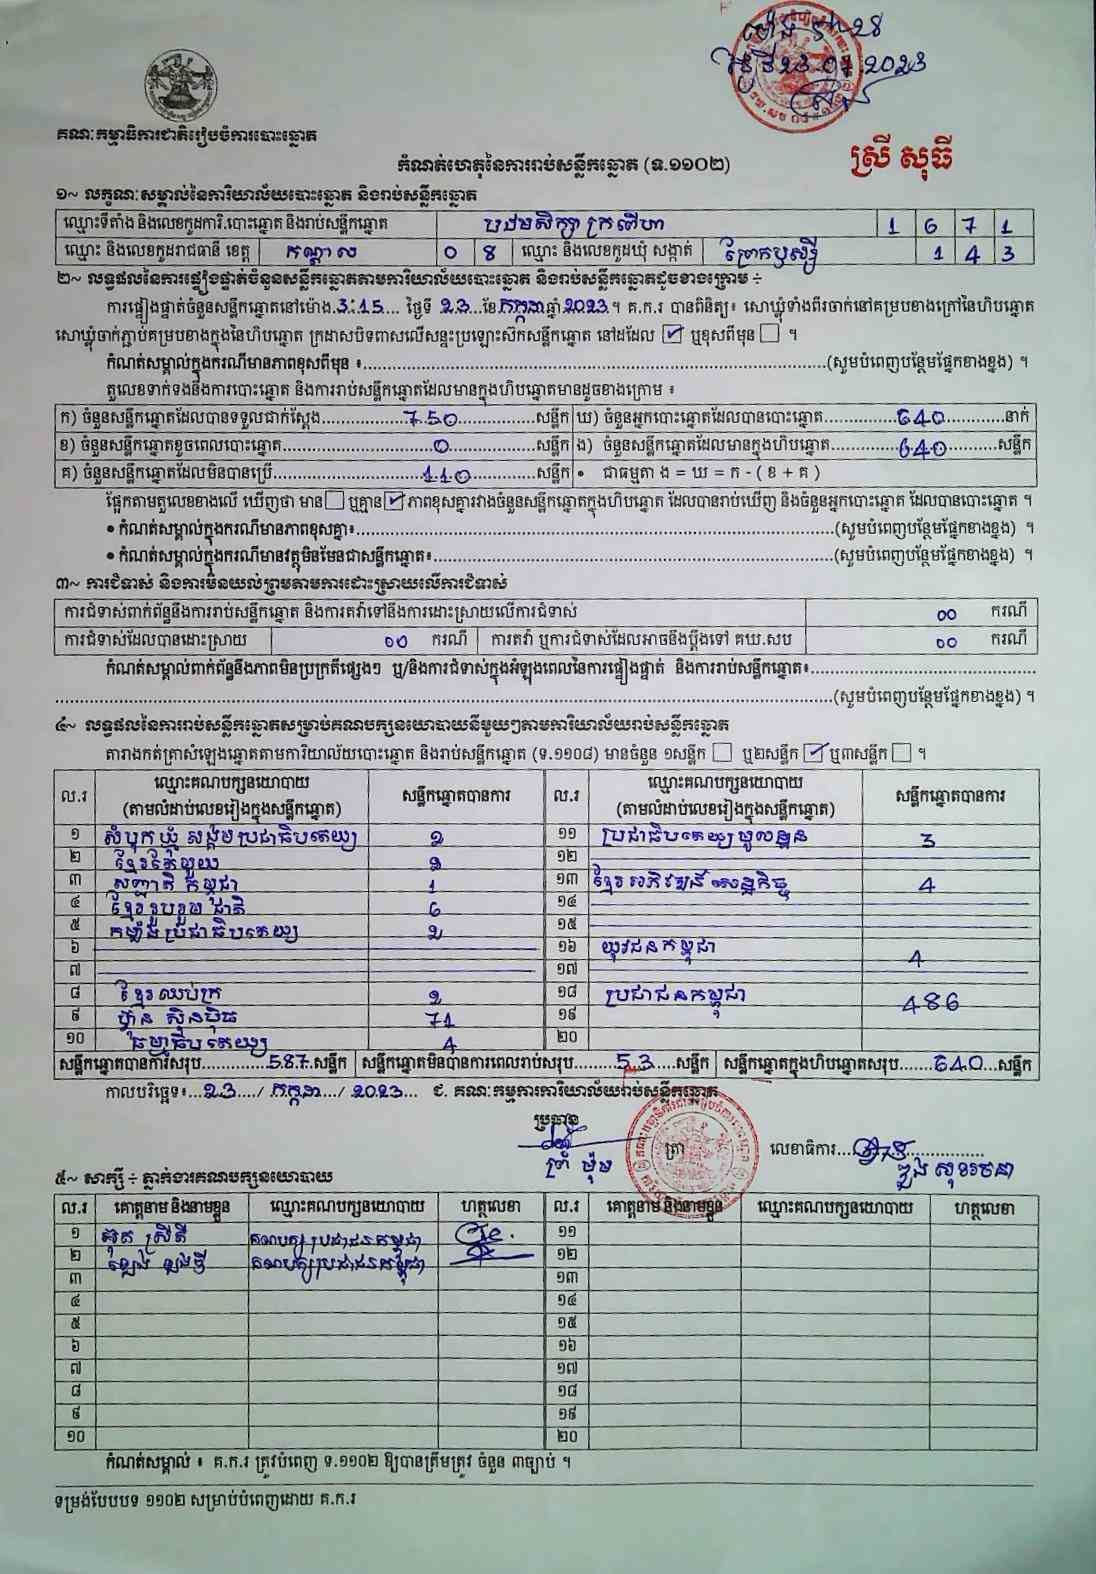 ម៉ោង
ថ្ងៃទី 23.07.2023
គណៈកម្មាធិការជាតិរៀបចំការបោះឆ្នោត
កំណត់ហេតុនៃការរាប់សន្លឹកឆ្នោត (ទ.១១០២)
ស្រី សុធី
១~ លក្ខណៈសម្គាល់នៃការិយាល័យបោះឆ្នោត និងរាប់សន្លឹកឆ្នោត
ឈ្មោះទីតាំង និងលេខកូដការិ.បោះឆ្នោត និងរាប់សន្លឹកឆ្នោត បឋមសិក្សា 1 6 7 1
ឈ្មោះ និងលេខកូដរាជធានី ខេត្ត កណ្ដាល 0 8 ឈ្មោះ និងលេខកូដឃុំ សង្កាត់ ព្រែកឫស្សី 1 4 3
២~ លទ្ធផលនៃការផ្ទៀងផ្ទាត់ចំនួនសន្លឹកឆ្នោតតាមការិយាល័យបោះឆ្នោត និងរាប់សន្លឹកឆ្នោតដូចខាងក្រោម ÷
ការផ្ទៀងផ្ទាត់ចំនួនសន្លឹកឆ្នោតនៅម៉ោង.3:15.... ថ្ងៃទី 23...ខែកក្កដាឆ្នាំ2023។ គ.ក.រ បានពិនិត្យ៖ សោឃ្លុំទាំងពីរចាក់នៅគម្របខាងក្រៅនៃហិបឆ្នោត
សោឃ្លុំចាក់ភ្ជាប់គម្របខាងក្នុងនៃហិបឆ្នោត ក្រដាសបិទពាសលើសន្ទះប្រឡោះស៊កសន្លឹកឆ្នោត នៅដដែល ✓ ឬខុសពីមុន ។
កំណត់សម្គាល់ក្នុងករណីមានភាពខុសពីមុន ៖...(សូមបំពេញបន្ថែមផ្នែកខាងខ្នង) ។
តួលេខទាក់ទងនឹងការបោះឆ្នោត និងការរាប់សន្លឹកឆ្នោតដែលមានក្នុងហិបឆ្នោតមានដូចខាងក្រោម ៖
ក) ចំនួនសន្លឹកឆ្នោតដែលបានទទួលជាក់ស្ដែង......750......សន្លឹក ឃ) ចំនួនអ្នកបោះឆ្នោតដែលបានបោះឆ្នោត......640......នាក់
ខ) ចំនួនសន្លឹកឆ្នោតខូចពេលបោះឆ្នោត......0......សន្លឹក ង) ចំនួនសន្លឹកឆ្នោតដែលមានក្នុងហិបឆ្នោត......640......សន្លឹក
គ) ចំនួនសន្លឹកឆ្នោតដែលមិនបានប្រើ......110......សន្លឹក • ជាធម្មតា ង = ឃ = ក - ( ខ + គ )
ផ្អែកតាមតួលេខខាងលើ ឃើញថា មាន ឬគ្មាន ✓ ភាពខុសគ្នារវាងចំនួនសន្លឹកឆ្នោតក្នុងហិបឆ្នោត ដែលបានរាប់ឃើញ និងចំនួនអ្នកបោះឆ្នោត ដែលបានបោះឆ្នោត ។
• កំណត់សម្គាល់ក្នុងករណីមានភាពខុសគ្នា៖...(សូមបំពេញបន្ថែមផ្នែកខាងខ្នង) ។
• កំណត់សម្គាល់ក្នុងករណីមានវត្ថុមិនមែនជាសន្លឹកឆ្នោត៖...(សូមបំពេញបន្ថែមផ្នែកខាងខ្នង) ។
៣~ ការជំទាស់ និងការមិនយល់ព្រមតាមការដោះស្រាយលើការជំទាស់
ការជំទាស់ពាក់ព័ន្ធនឹងការរាប់សន្លឹកឆ្នោត និងការតវ៉ាទៅនឹងការដោះស្រាយលើការជំទាស់ 00 ករណី
ការជំទាស់ដែលបានដោះស្រាយ 00 ករណី ការតវ៉ា ឬការជំទាស់ដែលអាចនឹងប្ដឹងទៅ គឃ.សប 00 ករណី
កំណត់សម្គាល់ពាក់ព័ន្ធនឹងភាពមិនប្រក្រតីផ្សេងៗ ឬ/និងការជំទាស់ក្នុងអំឡុងពេលនៃការផ្ទៀងផ្ទាត់ និងការរាប់សន្លឹកឆ្នោត៖...
...(សូមបំពេញបន្ថែមផ្នែកខាងខ្នង) ។
៤~ លទ្ធផលនៃការរាប់សន្លឹកឆ្នោតសម្រាប់គណបក្សនយោបាយនីមួយៗតាមការិយាល័យរាប់សន្លឹកឆ្នោត
តារាងកត់ត្រាសំឡេងឆ្នោតតាមការិយាល័យបោះឆ្នោត និងរាប់សន្លឹកឆ្នោត (ទ.១១០៨) មានចំនួន ១សន្លឹក ឬ២សន្លឹក ✓ ឬ៣សន្លឹក ។
ល.រ ឈ្មោះគណបក្សនយោបាយ (តាមលំដាប់លេខរៀងក្នុងសន្លឹកឆ្នោត) សន្លឹកឆ្នោតបានការ ល.រ ឈ្មោះគណបក្សនយោបាយ (តាមលំដាប់លេខរៀងក្នុងសន្លឹកឆ្នោត) សន្លឹកឆ្នោតបានការ
១ សំបុកឃ្មុំ សង្គមប្រជាធិបតេយ្យ 2 ១១ ប្រជាធិបតេយ្យមូលដ្ឋាន 3
២ ខ្មែរតែមួយ ១២
៣ សញ្ជាតិ កម្ពុជា 1 ១៣ ខ្មែរ អភិវឌ្ឍន៍ សេដ្ឋកិច្ច 4
៤ ខ្មែររួបរួម ជាតិ 6 ១៤
៥ កម្លាំងប្រជាធិបតេយ្យ 2 ១៥
៦ ១៦ យុវជនកម្ពុជា 4
៧ ១៧
៨ ខ្មែរឈប់ក្រ 2 ១៨ ប្រជាជនកម្ពុជា 486
៩ ហ៊្វុន ស៊ិនប៉ិច 71 ១៩
១០ ធម្មាធិបតេយ្យ 4 ២០
សន្លឹកឆ្នោតបានការសរុប......587.សន្លឹក សន្លឹកឆ្នោតមិនបានការពេលរាប់សរុប......53....សន្លឹក សន្លឹកឆ្នោតក្នុងហិបឆ្នោតសរុប......640...សន្លឹក
កាលបរិច្ឆេទ៖...23..../ កក្កដា.../ 2023... ជ. គណៈកម្មការការិយាល័យរាប់សន្លឹកឆ្នោត
ប្រធាន
ត្រា លេខាធិការ......
ព្រំ ម៉ុម
៥~ សាក្សី ÷ ភ្នាក់ងារគណបក្សនយោបាយ
ល.រ គោត្តនាម និងនាមខ្លួន ឈ្មោះគណបក្សនយោបាយ ហត្ថលេខា ល.រ គោត្តនាម និងនាមខ្លួន ឈ្មោះគណបក្សនយោបាយ ហត្ថលេខា
១ គណបក្សប្រជាជនកម្ពុជា ១១
២ គណបក្សប្រជាជនកម្ពុជា ១២
៣ ១៣
៤ ១៤
៥ ១៥
៦ ១៦
៧ ១៧
៨ ១៨
៩ ១៩
១០ ២០
កំណត់សម្គាល់ ៖ គ.ក.រ ត្រូវបំពេញ ទ.១១០២ ឱ្យបានត្រឹមត្រូវ ចំនួន ៣ច្បាប់ ។
ទម្រង់បែបបទ ១១០២ សម្រាប់បំពេញដោយ គ.ក.រ